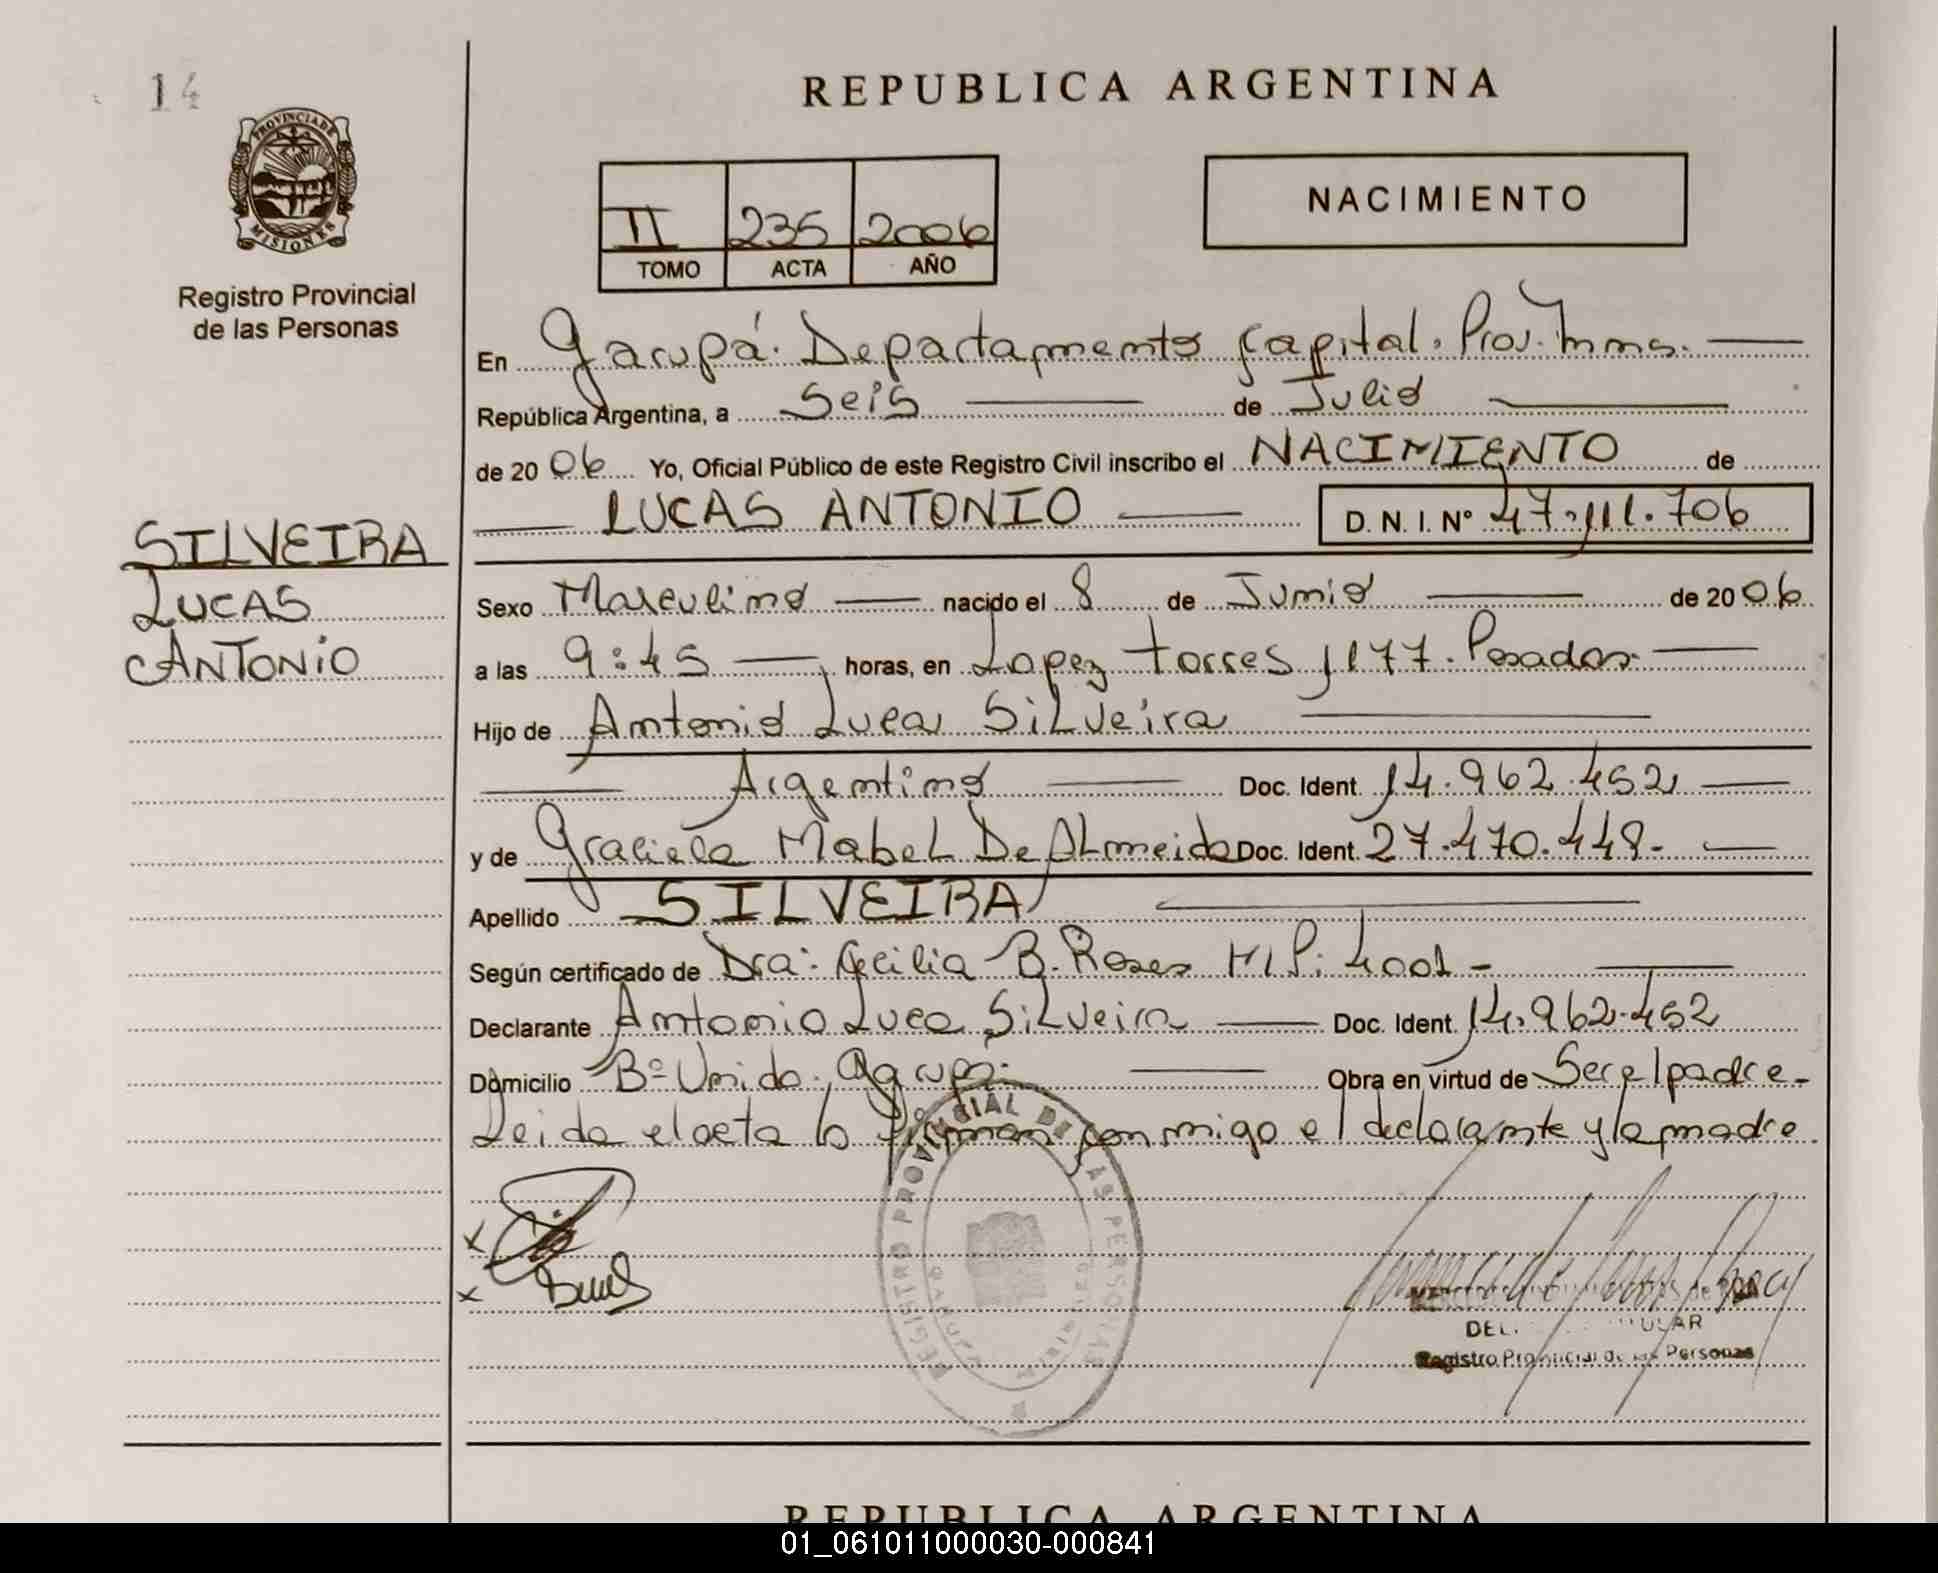 14
REPUBLICA ARGENTINA
PROVINCIA DE
MISIONES
Registro Provincial
de las Personas
II 235 2006
TOMO ACTA AÑO
NACIMIENTO
En Garupá. Departamento Capital. Prov. Mnes.
República Argentina, a Seis de Julio
de 20 06 Yo, Oficial Público de este Registro Civil inscribo el NACIMIENTO de
LUCAS ANTONIO D. N. I. N° 47.111.706
SILVEIRA
LUCAS
ANTONIO
Sexo Masculino nacido el 8 de Junio de 20 06
a las 9:45 horas, en Lopez Torres 1177. Posadas
Hijo de Antonio Luca Silveira
Argentino Doc. Ident. 14.962.452
y de Graciela Mabel De Almeida Doc. Ident. 27.470.448.-
Apellido SILVEIRA
Según certificado de Dra: Cecilia B. Roses M.P: 4001 -
Declarante Antonio Luca Silveira Doc. Ident. 14.962.452
Domicilio B° Unido. Garupá. Obra en virtud de Ser el padre -
Leida el acta la firman conmigo el declarante y la madre.
REGISTRO PROVINCIAL DE LAS PERSONAS
Registro Provincial de las Personas
REPUBLICA ARGENTINA
01_061011000030-000841